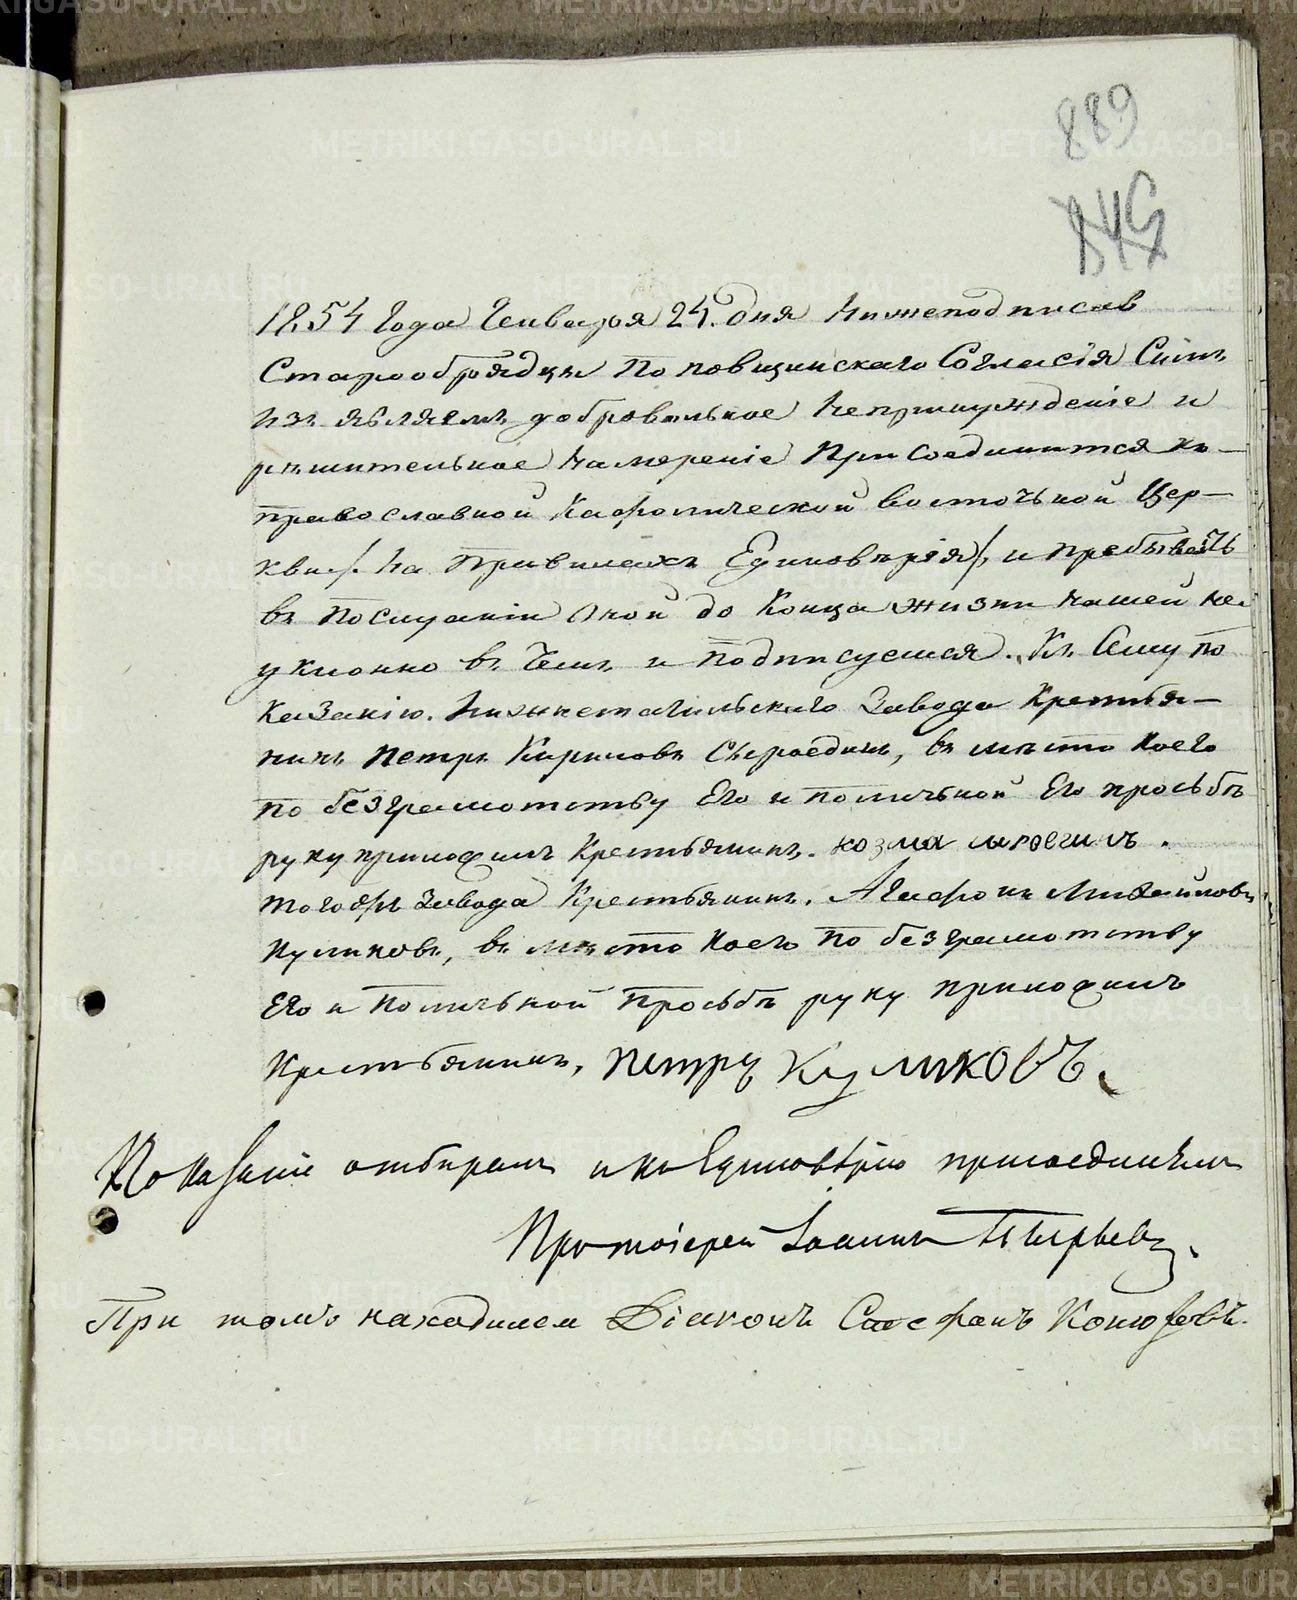 889
1854 Года Генваря 24. дня Нижеподписав
Старообрядцы Поповщинскаго Согласія Симъ
изъявляемъ добровольное Непринужденіе и
решительное Намереніе Присоединится къ
православной Кафолической Восточьной Цер-
кви /. На Правилахъ Единоверія /. и пребывать
въ Послушаніи Оной до Конца жизни Нашей не-
уклонно въ Чемъ и Подписуемся. Къ Сему по
казанію. Нижнетагильскаго Завода Крестья-
нинъ Петръ Кириловъ Сыроединъ, въ место Коего
по безграмотству Его и Поличьной Его просьбе
руку приложилъ Крестьянинъ. козма
тогожъ Завода Крестьянинъ. Агафонъ Михайловъ
Куликовъ, въ место Коего по безграмотству
Его и Поличьной Просьбе руку приложилъ
Крестьянинъ, Петръ Куликовъ.
Показаніе отбиралъ и къ Единоверію присоединилъ
Протоіерей Іоаннъ
При томъ находился Діаконъ Стефанъ Конюховъ.
METRIKI.GASO-URAL.RU